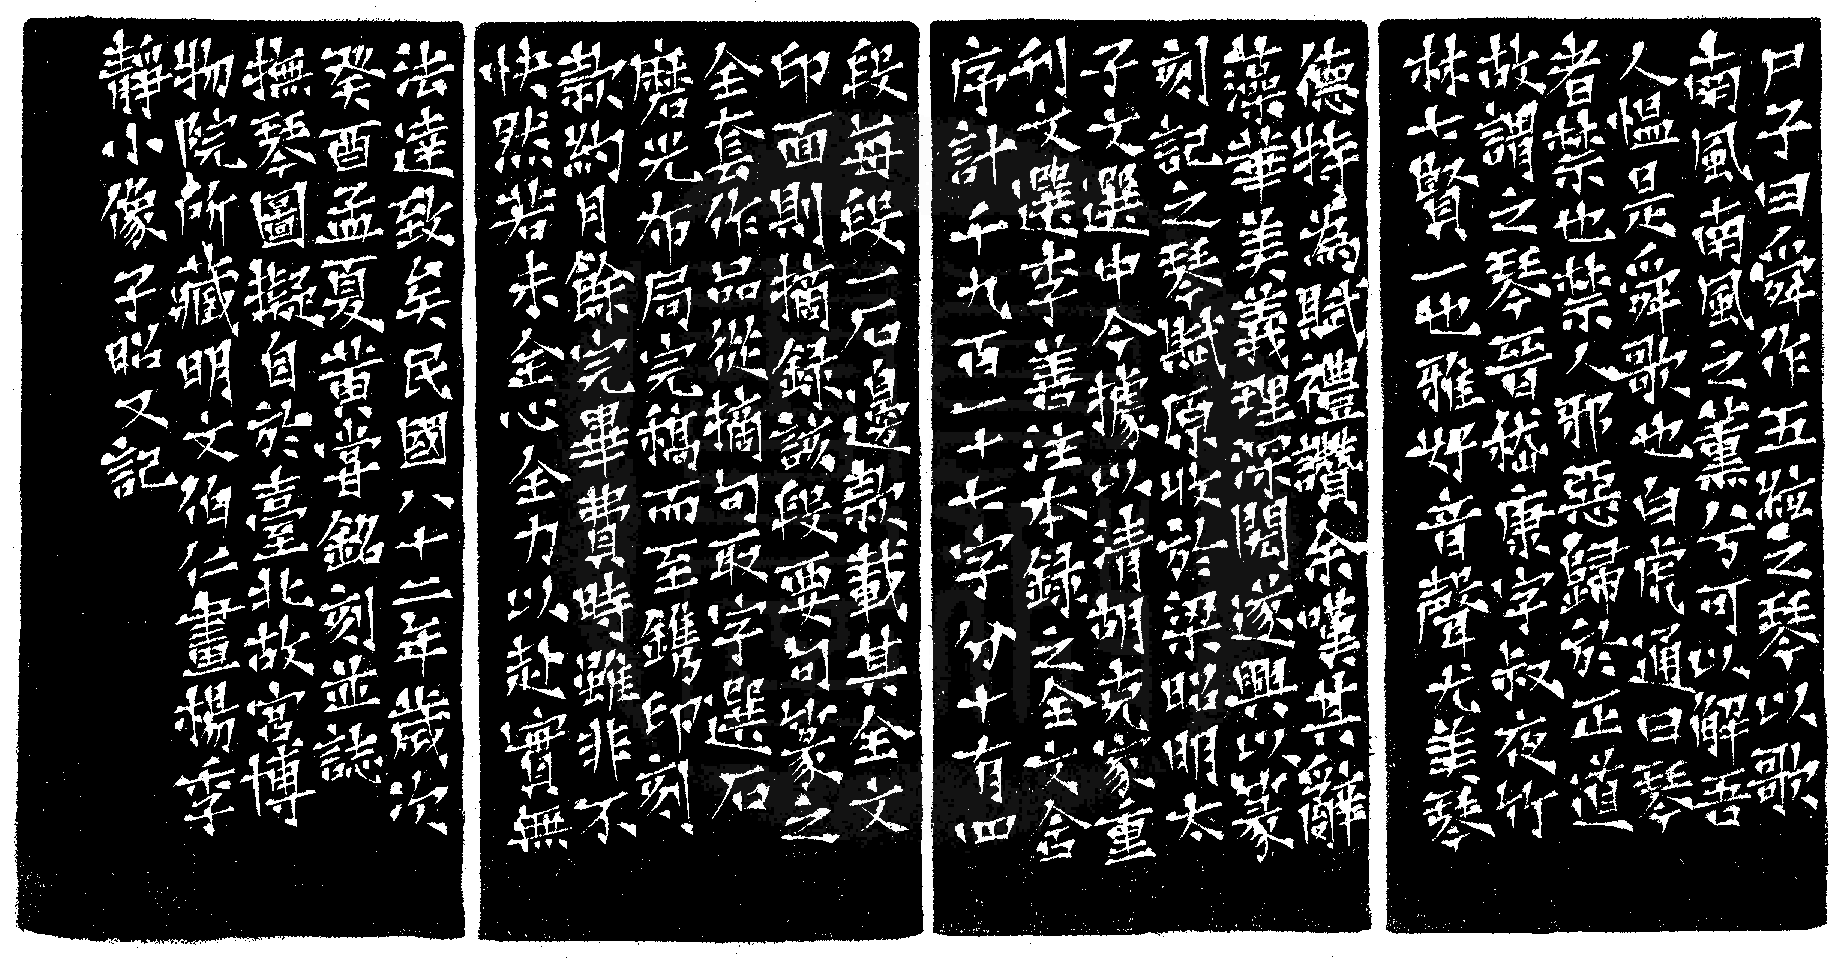 尸子曰舜作五絃之琴以歌
南風南風之薰兮可以解吾
人慍是舜歌也白虎通曰琴
者禁也禁人邪惡歸於正道
故謂之琴晉嵇康字叔夜竹
林七賢一也雅好音聲尤美琴
德特為賦禮讚余嘆其辭
藻華美義理深閎遂興以篆
刻記之琴賦原收於梁昭明太
子文選中今據以清胡克家重
刊文選李善注本錄之全文含
序計千九百一十七字分十有四
段每段一石邊款載其全文
印面則摘錄該段要句篆之
全套作品從摘句取字選石
磨光布局完稿而至鐫印刻
款約月餘完畢費時雖非不
快然若未全心全力以赴實無
法達致矣民國八十二年歲次
癸酉孟夏黃嘗銘刻並誌
撫琴圖擬自於臺北故宮博
物院所藏明文伯仁畫楊季
靜小像子昭又記